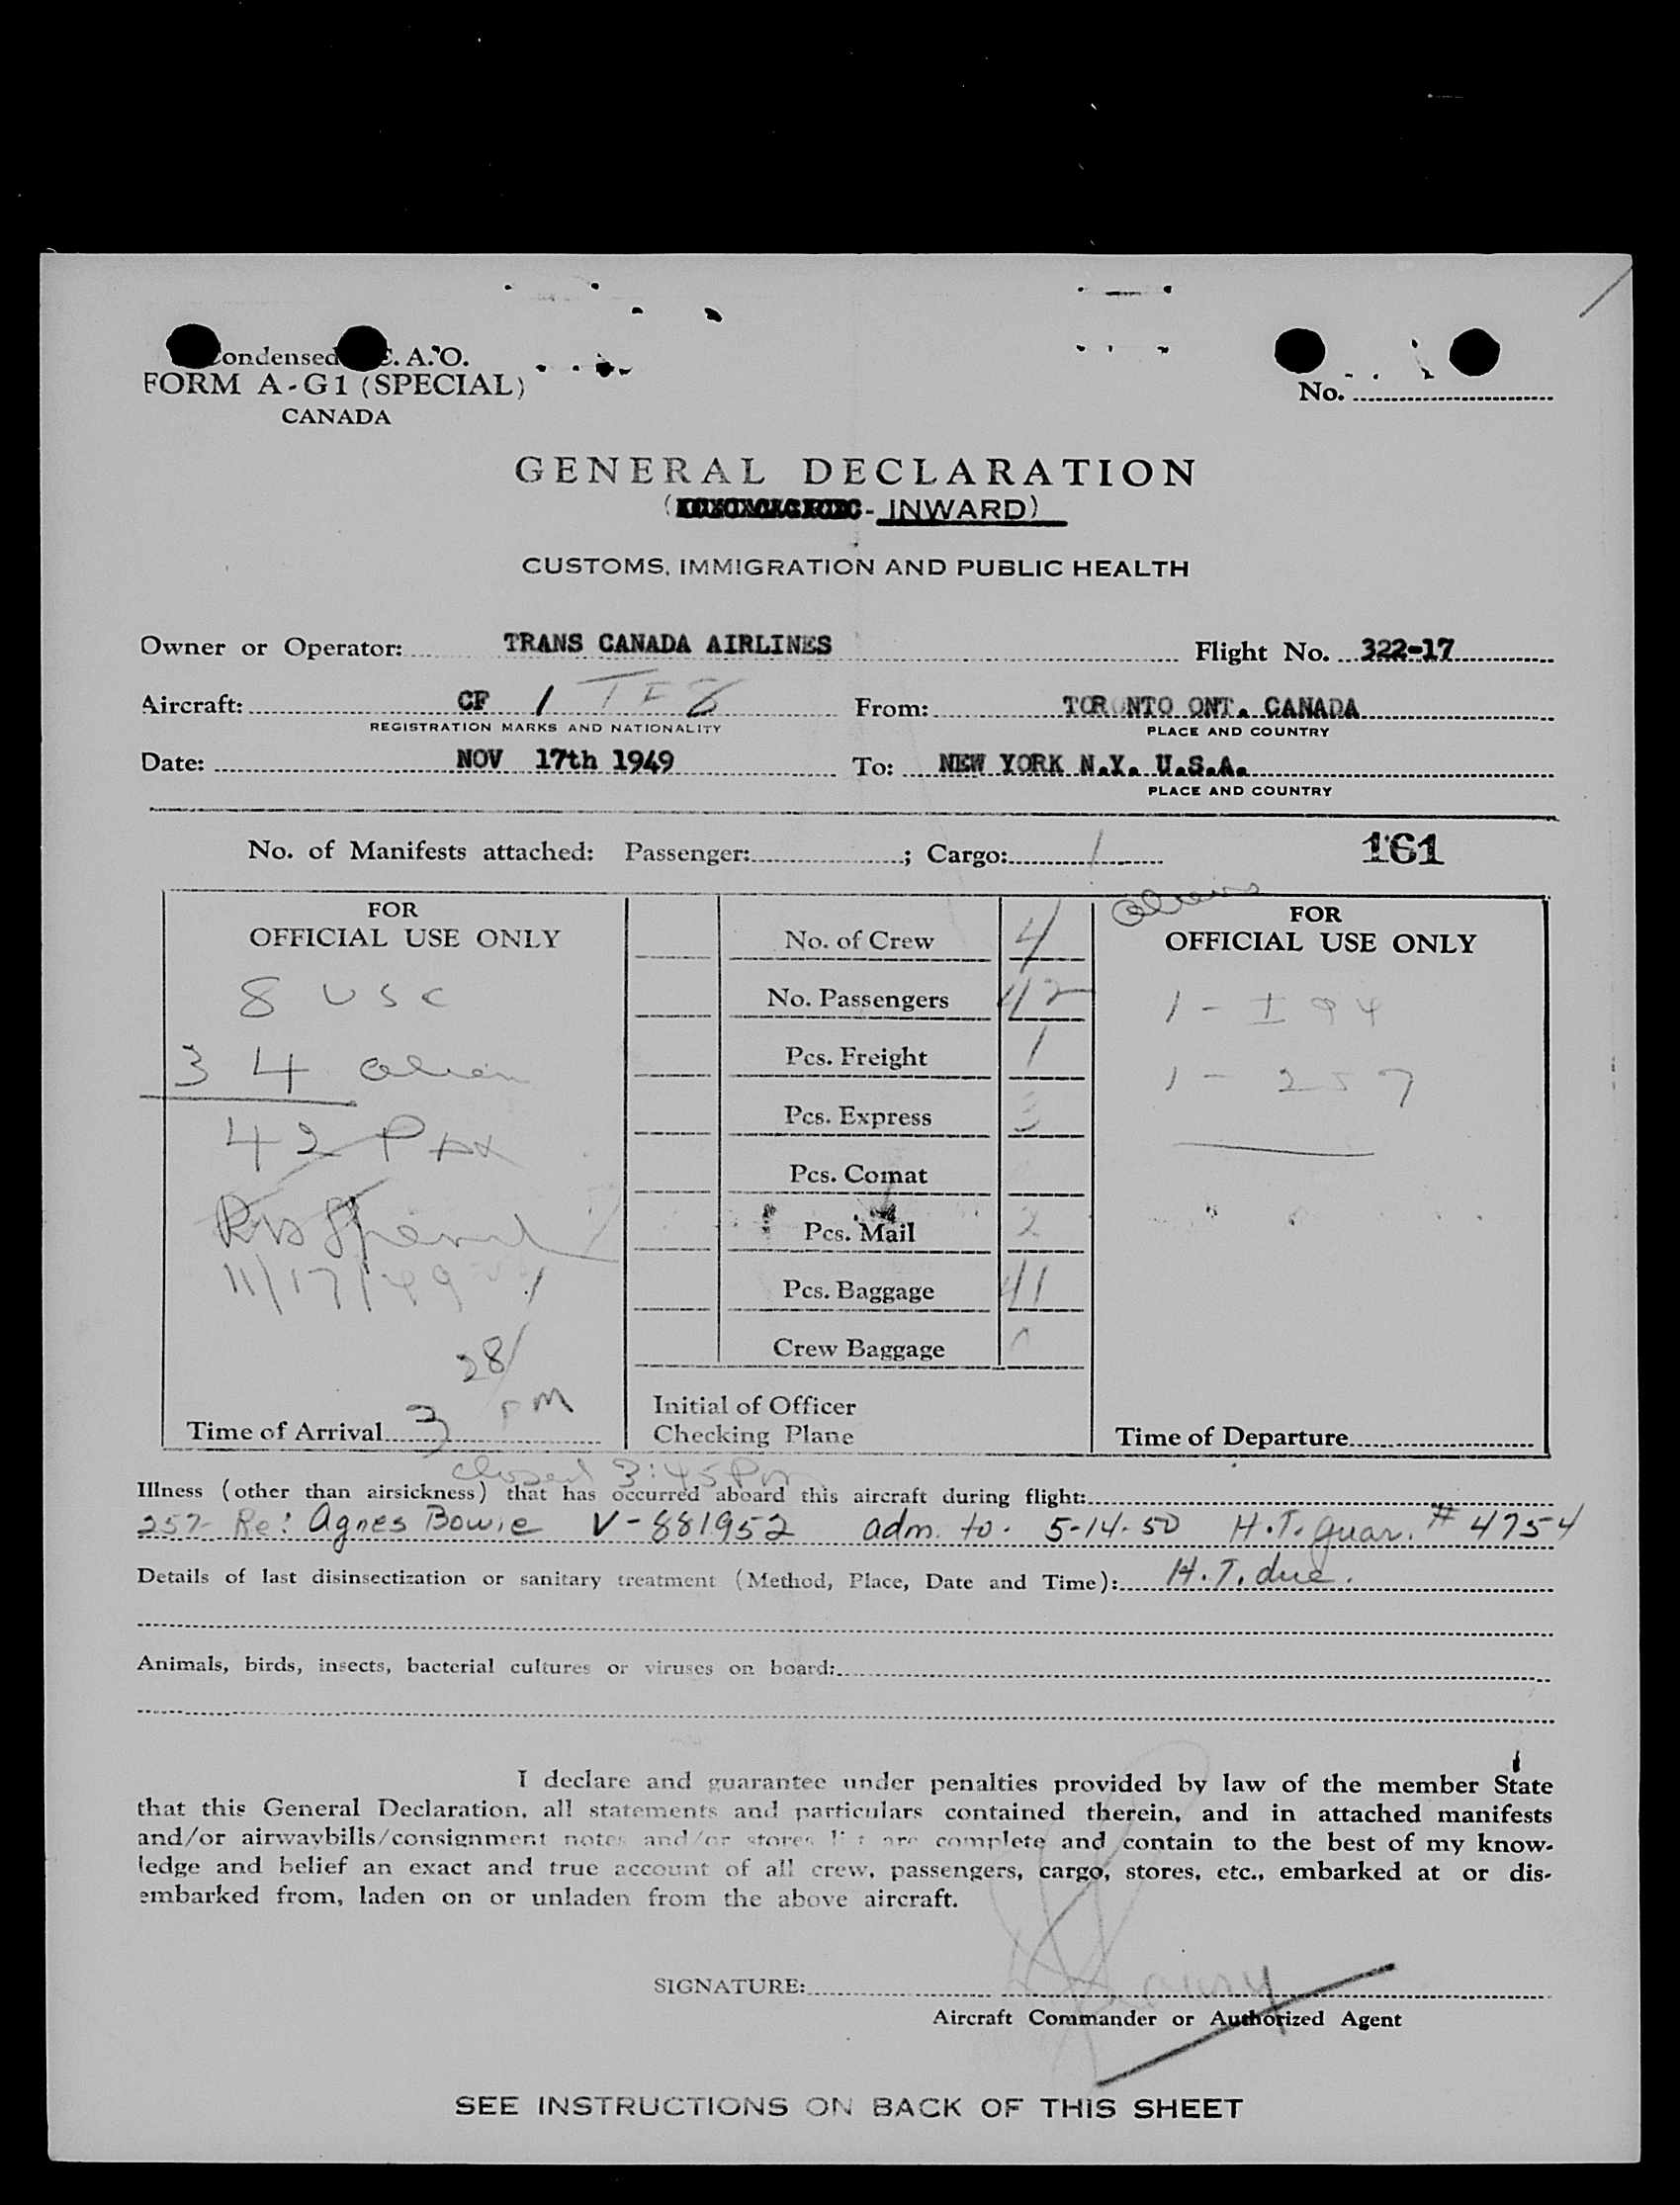 Condensed I.C.A.O.
FORM A-G1 (SPECIAL)
CANADA
No.
GENERAL DECLARATION
( - INWARD)
CUSTOMS, IMMIGRATION AND PUBLIC HEALTH
Owner or Operator: TRANS CANADA AIRLINES Flight No. 322-17
Aircraft: CF / TFZ From: TORONTO ONT. CANADA
REGISTRATION MARKS AND NATIONALITY PLACE AND COUNTRY
Date: NOV 17th 1949 To: NEW YORK N.Y. U.S.A.
PLACE AND COUNTRY
No. of Manifests attached: Passenger: ; Cargo: 1 161
FOR
OFFICIAL USE ONLY
8 USC
34 alien
42 PAX
11/17/49
28
Time of Arrival 3 PM
No. of Crew 4
No. Passengers 42
Pcs. Freight 1
Pcs. Express 3
Pcs. Comat
Pcs. Mail 2
Pcs. Baggage 41
Crew Baggage
Initial of Officer
Checking Plane
aliens
FOR
OFFICIAL USE ONLY
1 - I 94
1 - 257
Time of Departure
closed 3:45 Pm
Illness (other than airsickness) that has occurred aboard this aircraft during flight:
257- Re: Agnes Bowie V-881952 adm. to. 5-14-50 H.T. guar. # 4754
Details of last disinsectization or sanitary treatment (Method, Place, Date and Time): H.T. due.
Animals, birds, insects, bacterial cultures or viruses on board:
I declare and guarantee under penalties provided by law of the member State
that this General Declaration, all statements and particulars contained therein, and in attached manifests
and/or airwaybills/consignment notes and/or stores list are complete and contain to the best of my know-
ledge and belief an exact and true account of all crew, passengers, cargo, stores, etc., embarked at or dis-
embarked from, laden on or unladen from the above aircraft.
SIGNATURE:
Aircraft Commander or Authorized Agent
SEE INSTRUCTIONS ON BACK OF THIS SHEET